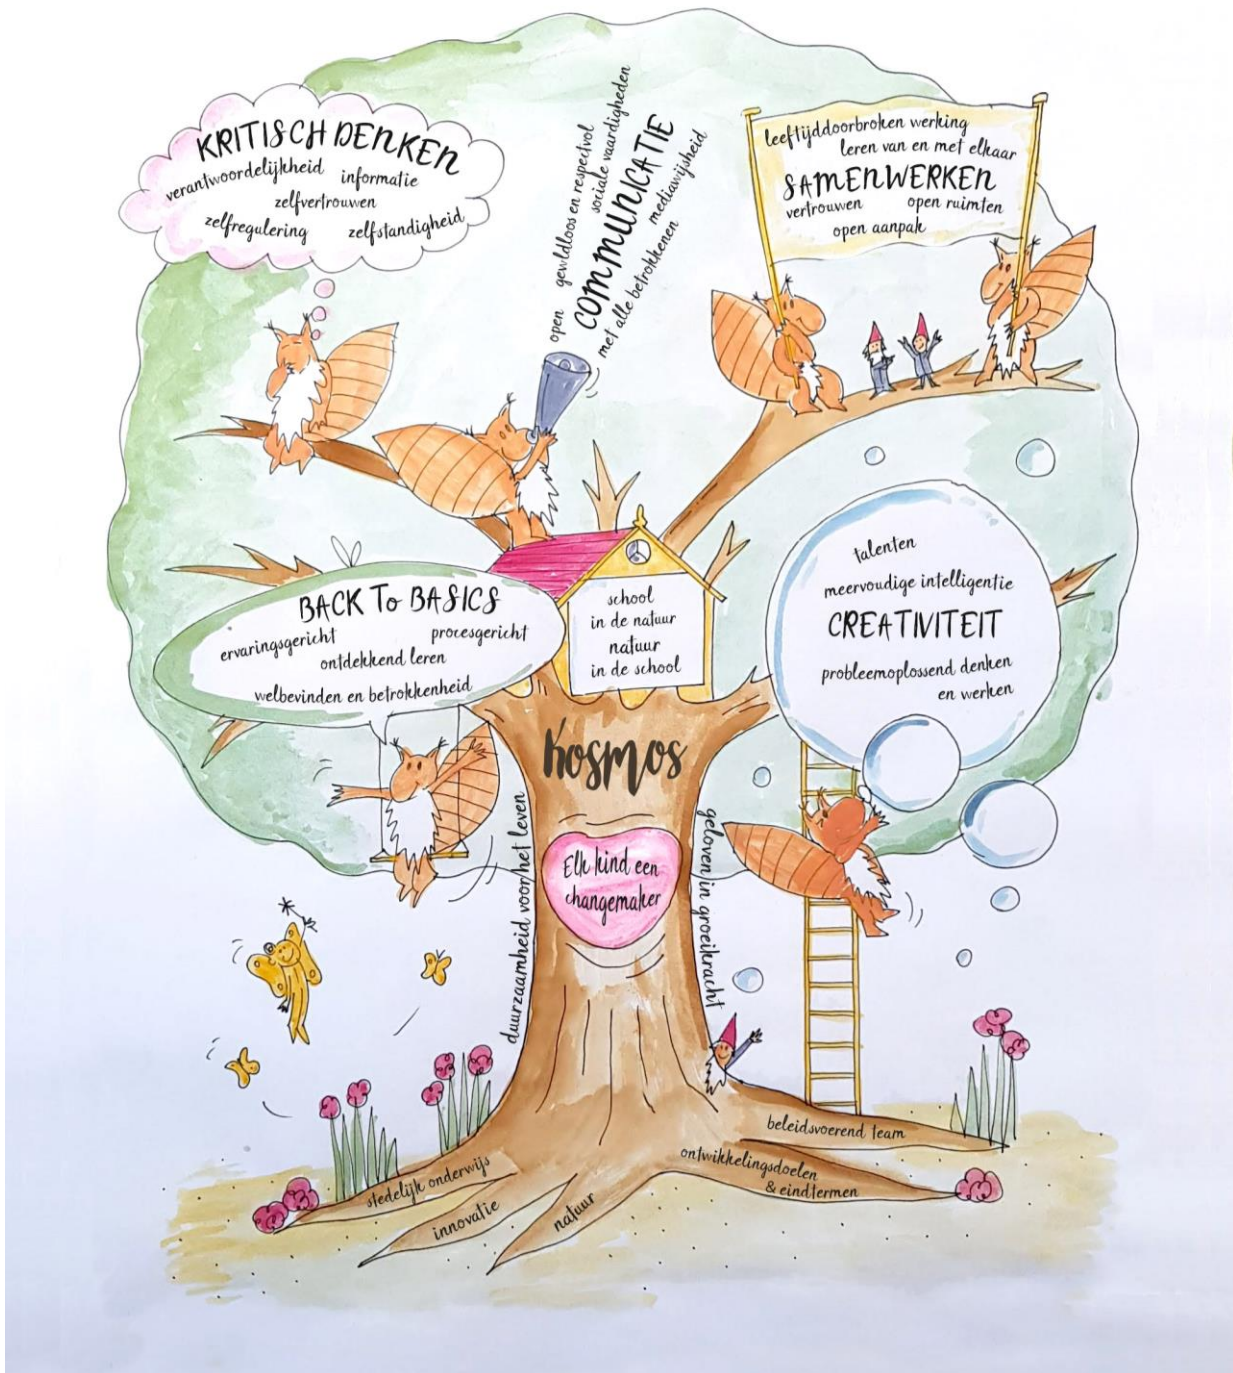 KRITISCH DENKEN
verantwoordelijkheid
informatie
zelfvertrouwen
zelfregulering
zelfstandigheid
open
gewldloos en respectvol
sociale vaardigheden
COMMUNICATIE
mediawijsheid
met alle betrokkenen
leeftijddoorbroken werking
leren van en met elkaar
SAMENWERKEN
vertrouwen
open ruimten
open aanpak
BACK To BASICS
ervaringsgericht
procesgericht
ontdekkend leren
welbevinden en betrokkenheid
school
in de natuur
natuur
in de school
talenten
meervoudige intelligentie
CREATIVITEIT
probleemoplossend denken
en werken
Kosmos
duurzaamheid voor het leven
Elk kind een
changemaker
geloven in groeikracht
stedelijk onderwijs
innovatie
natuur
ontwikkelingsdoelen
& eindtermen
beleidsvoerend team